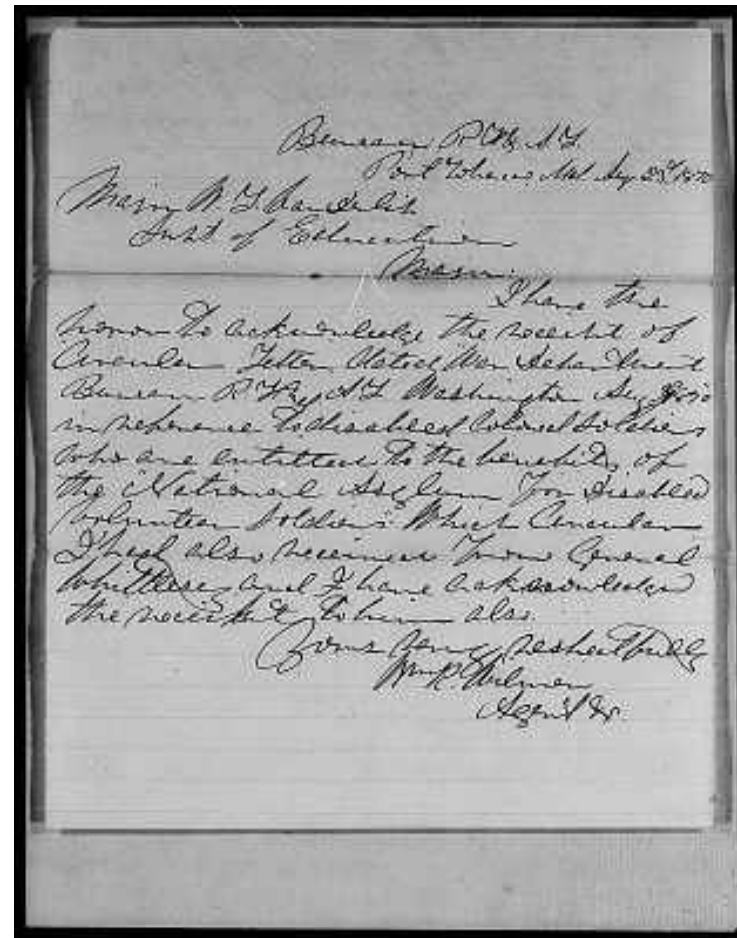 Bureau R. F. & A. L.
Port Tobacco, Md. Aug 1870
Major W. L. Vanderlip
Supt of Education
Major:
I have the
honor to acknowledge the receipt of
Circular Letter dated War Department
Bureau R. F. & A. L. Washington Aug 1870
in reference to disabled Colored Soldiers
who are entitled to the benefits of
the National Asylum for disabled
volunteer soldiers. Which Circular
I had also received from General
Whittlesey and I have acknowledged
the receipt to him also.
Yours very respectfully
Wm. R. Wilmer
Agent &c.